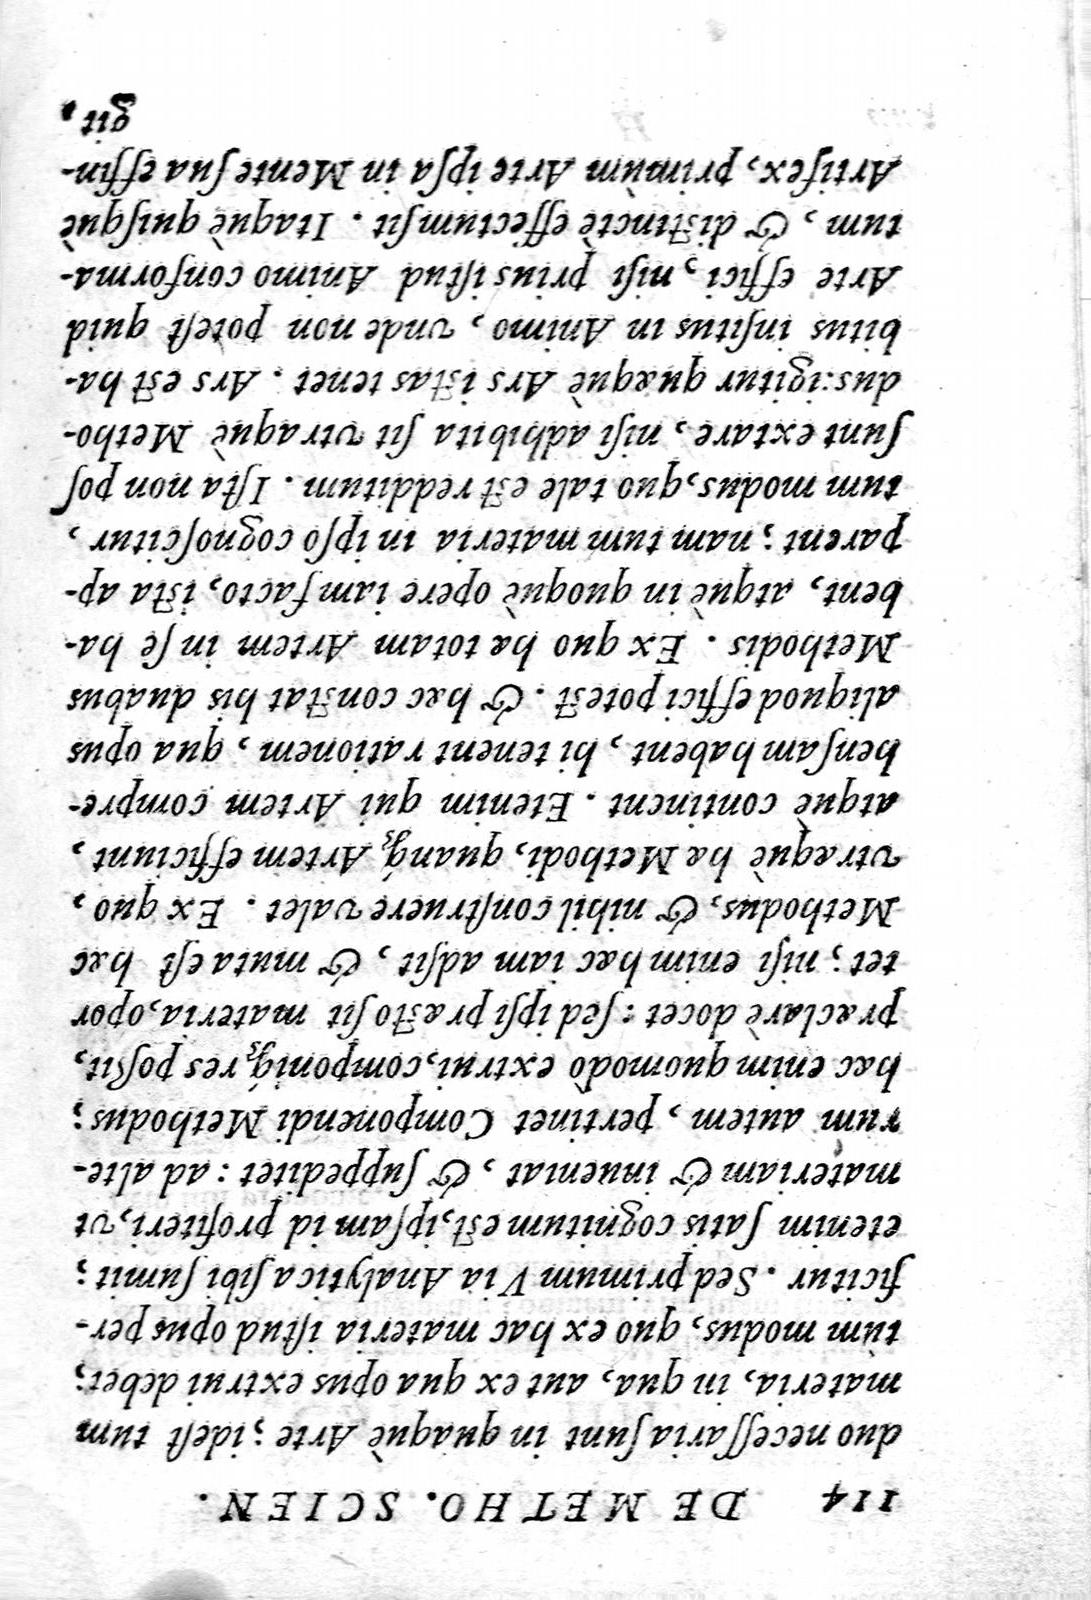 114 DE METHO. SCIEN.
duo neceſſaria ſunt in quaquè Arte; ideſt tum
materia, in qua, aut ex qua opus extrui debet;
tùm modus, quo ex hac materia iſtud opus per-
ficitur. Sed primum Via Analytica ſibi ſumit;
etenim ſatis cognitum eſt, ipſam id profiteri, vt
materiam & inueniat, & ſuppeditet: ad alte-
rum autem, pertinet Componendi Methodus;
hæc enim quomodò extrui, componiq́; res poſſit,
præclarè docet: ſed ipſi præſto ſit materia, opor
tet; niſi enim hæc iam adſit, & muta eſt hæc
Methodus, & nihil conſtruere valet. Ex quo,
vtræquè hæ Methodi, quanq́; Artem efficiunt,
atquè continent. Etenim qui Artem compre-
henſam habent, hi tenent rationem, qua opus
aliquod effici poteſt. & hæc conſtat his duabus
Methodis. Ex quo hæ totam Artem in ſe ha-
bent, atquè in quoquè opere iam facto, iſta ap-
parent; nam tum materia in ipſo cognoſcitur,
tum modus, quo tale eſt redditum. Iſta non poſ
ſunt extare, niſi adhibita ſit vtraquè Metho-
dus: igitur quæquè Ars iſtas tenet. Ars eſt ha-
bitus inſitus in Animo, vnde non poteſt quid
Arte effici, niſi prius iſtud Animo conforma-
tum, & diſtinctè effectum ſit. Itaquè quiſquè
Artifex, primùm Arte ipſa in Mente ſua effin-
git,